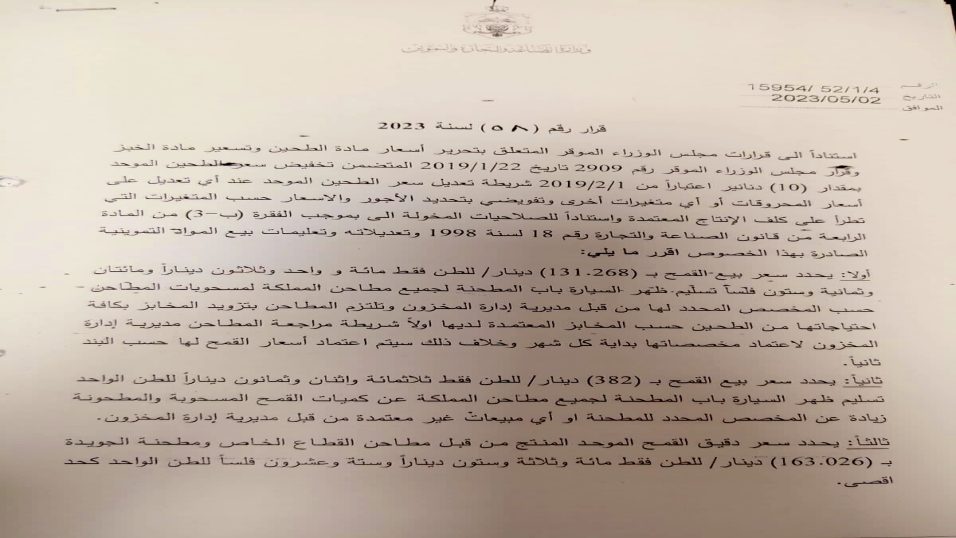 وزارة الصناعة والتجارة والتموين
الرقم 15954/ 52/1/4
التاريخ 2023/05/02
الموافق
قرار رقم (٥٨) لسنة 2023
استناداً الى قرارات مجلس الوزراء الموقر المتعلق بتحرير أسعار مادة الطحين وتسعير مادة الخبز
وقرار مجلس الوزراء الموقر رقم 2909 تاريخ 2019/1/22 المتضمن تخفيض سعر الطحين الموحد
بمقدار (10) دنانير اعتباراً من 2019/2/1 شريطة تعديل سعر الطحين الموحد عند أي تعديل على
أسعار المحروقات أو أي متغيرات أخرى وتفويضي بتحديد الأجور والاسعار حسب المتغيرات التي
تطرأ على كلف الإنتاج المعتمدة واستناداً للصلاحيات المخولة الى بموجب الفقرة (ب-3) من المادة
الرابعة من قانون الصناعة والتجارة رقم 18 لسنة 1998 وتعديلاته وتعليمات بيع المواد التموينية
الصادرة بهذا الخصوص اقرر ما يلي:
أولا: يحدد سعر بيع القمح بـ (131.268) دينار/ للطن فقط مائة و واحد وثلاثون ديناراً ومائتان
وثمانية وستون فلساً تسليم ظهر السيارة باب المطحنة لجميع مطاحن المملكة لمسحوبات المطاحن
حسب المخصص المحدد لها من قبل مديرية إدارة المخزون وتلتزم المطاحن بتزويد المخابز بكافة
احتياجاتها من الطحين حسب المخابز المعتمدة لديها اولاً شريطة مراجعة المطاحن مديرية إدارة
المخزون لاعتماد مخصصاتها بداية كل شهر وخلاف ذلك سيتم اعتماد أسعار القمح لها حسب البند
ثانياً.
ثانياً: يحدد سعر بيع القمح بـ (382) دينار/ للطن فقط ثلاثمائة واثنان وثمانون ديناراً للطن الواحد
تسليم ظهر السيارة باب المطحنة لجميع مطاحن المملكة عن كميات القمح المسحوبة والمطحونة
زيادة عن المخصص المحدد للمطحنة او أي مبيعات غير معتمدة من قبل مديرية إدارة المخزون.
ثالثاً: يحدد سعر دقيق القمح الموحد المنتج من قبل مطاحن القطاع الخاص ومطحنة الجويدة
بـ (163.026) دينار/ للطن فقط مائة وثلاثة وستون ديناراً وستة وعشرون فلساً للطن الواحد كحد
اقصى.